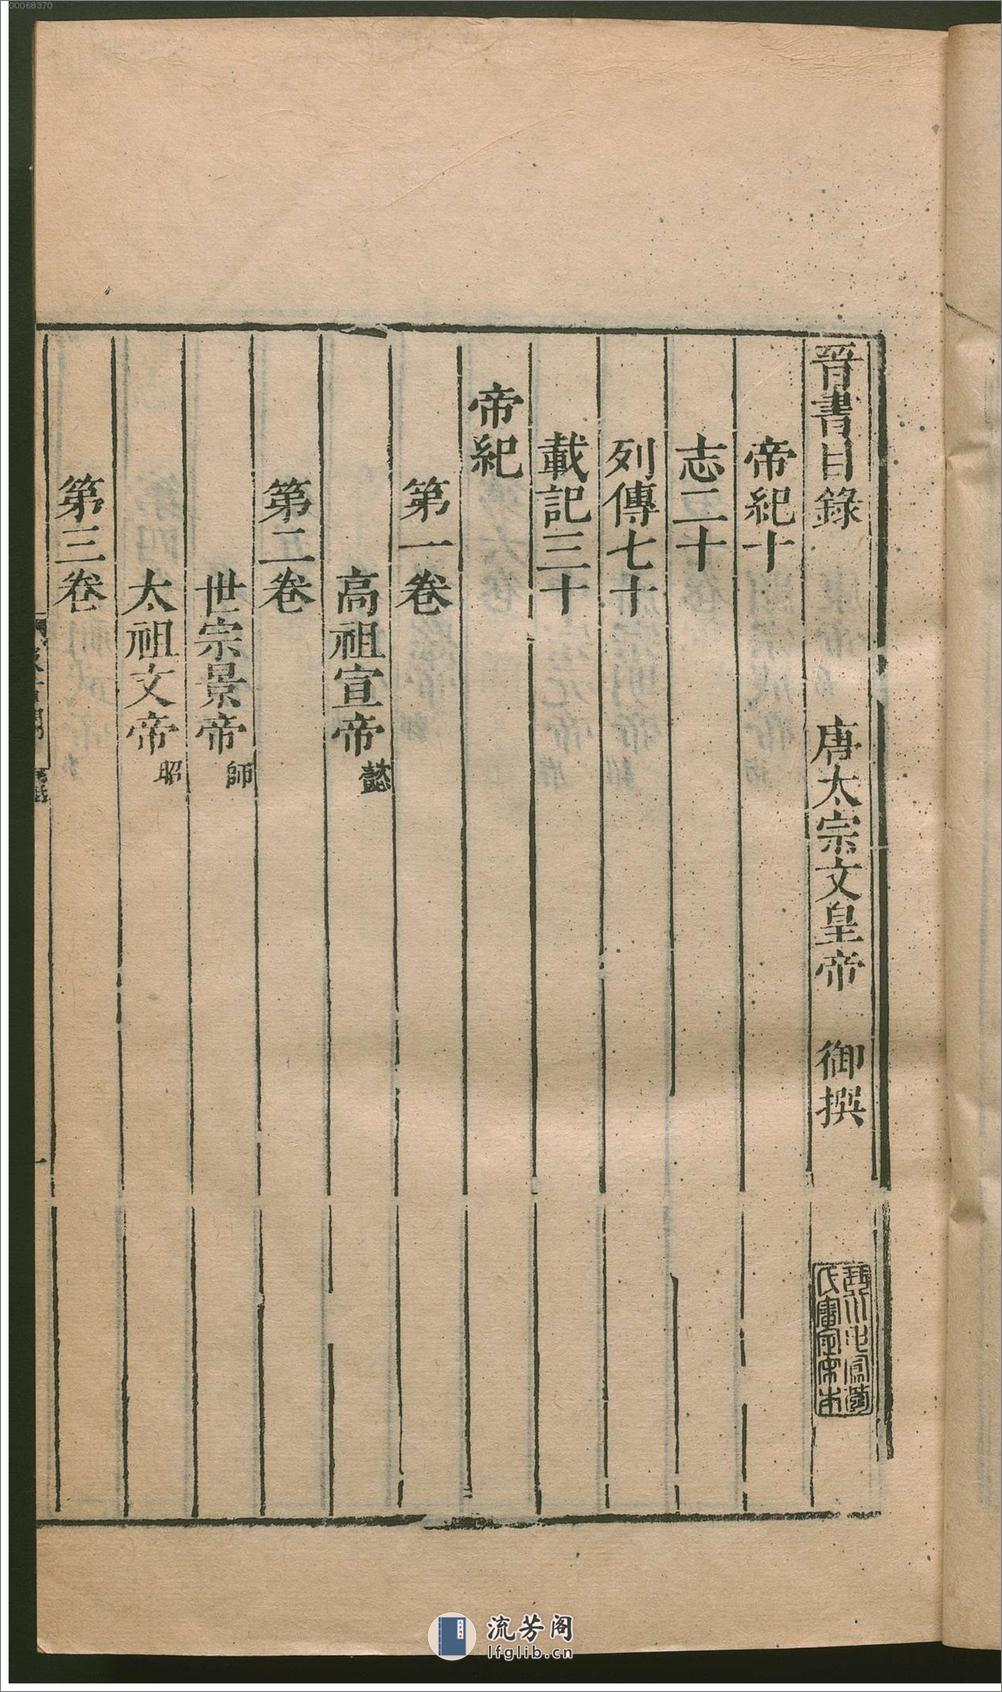 晉書目錄　唐太宗文皇帝　御撰
帝紀十
志二十
列傳七十
載記三十
帝紀
第一卷
高祖宣帝懿
第二卷
世宗景帝師
太祖文帝昭
第三卷
一
流芳阁
lfglib.cn
00068370